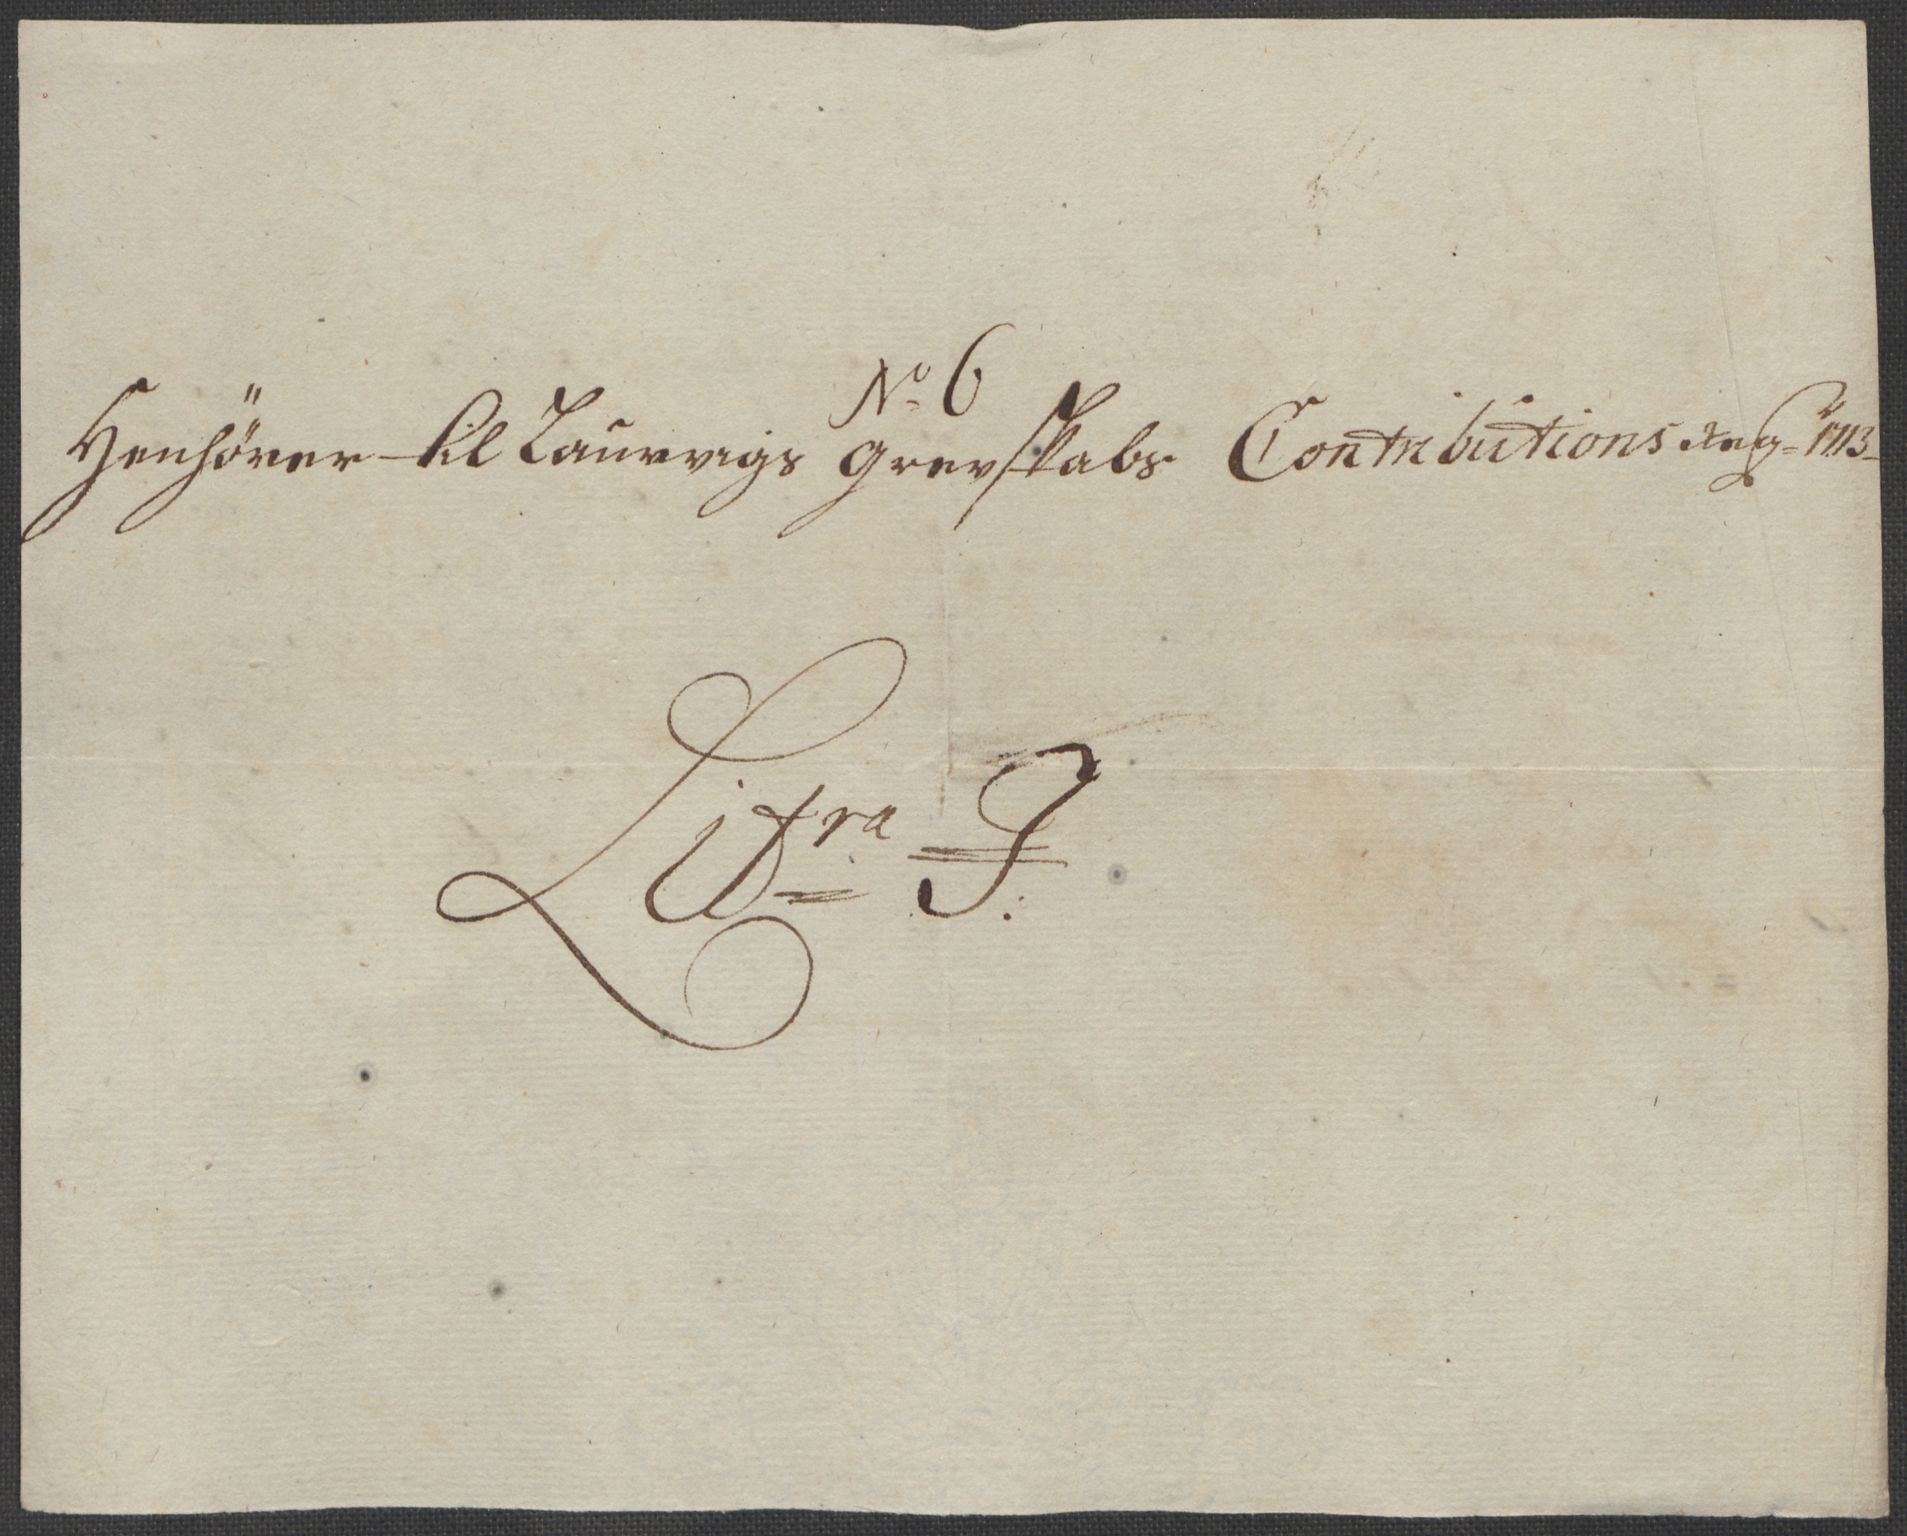 No 6
Henhörer til Laurvigs Grevskabs Contributions Reg= 1713
Litra J: